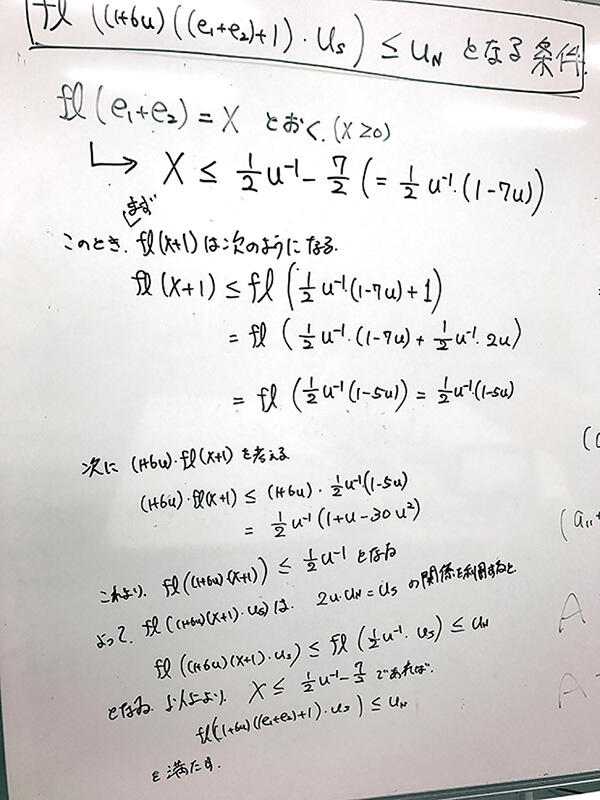 fl ((1+6u)((e₁+e₂)+1)・u_S) ≤ u_N となる条件.
fl(e₁+e₂) = X とおく. (X≥0)
↳ X ≤ 1/2 u⁻¹ - 7/2 (= 1/2 u⁻¹・(1-7u))
まず
このとき. fl(X+1) は次のようになる.
fl(X+1) ≤ fl(1/2 u⁻¹(1-7u)+1)
= fl(1/2 u⁻¹・(1-7u) + 1/2 u⁻¹・2u)
= fl(1/2 u⁻¹(1-5u)) = 1/2 u⁻¹(1-5u)
次に (1+6u)・fl(X+1) を考える
(1+6u)・fl(X+1) ≤ (1+6u)・1/2 u⁻¹(1-5u)
= 1/2 u⁻¹(1+u-30u²)
これより. fl((1+6u)(X+1)) ≤ 1/2 u⁻¹ となる
よって. fl((1+6u)(X+1)・u_S) は. 2u・u_N = u_S の関係を利用すると
fl((1+6u)(X+1)・u_S) ≤ fl(1/2 u⁻¹・u_S) ≤ u_N
となる. 以上より. X ≤ 1/2 u⁻¹ - 7/2 であれば.
fl((1+6u)((e₁+e₂)+1)・u_S) ≤ u_N
を満たす.
(a₁₁+
A
A